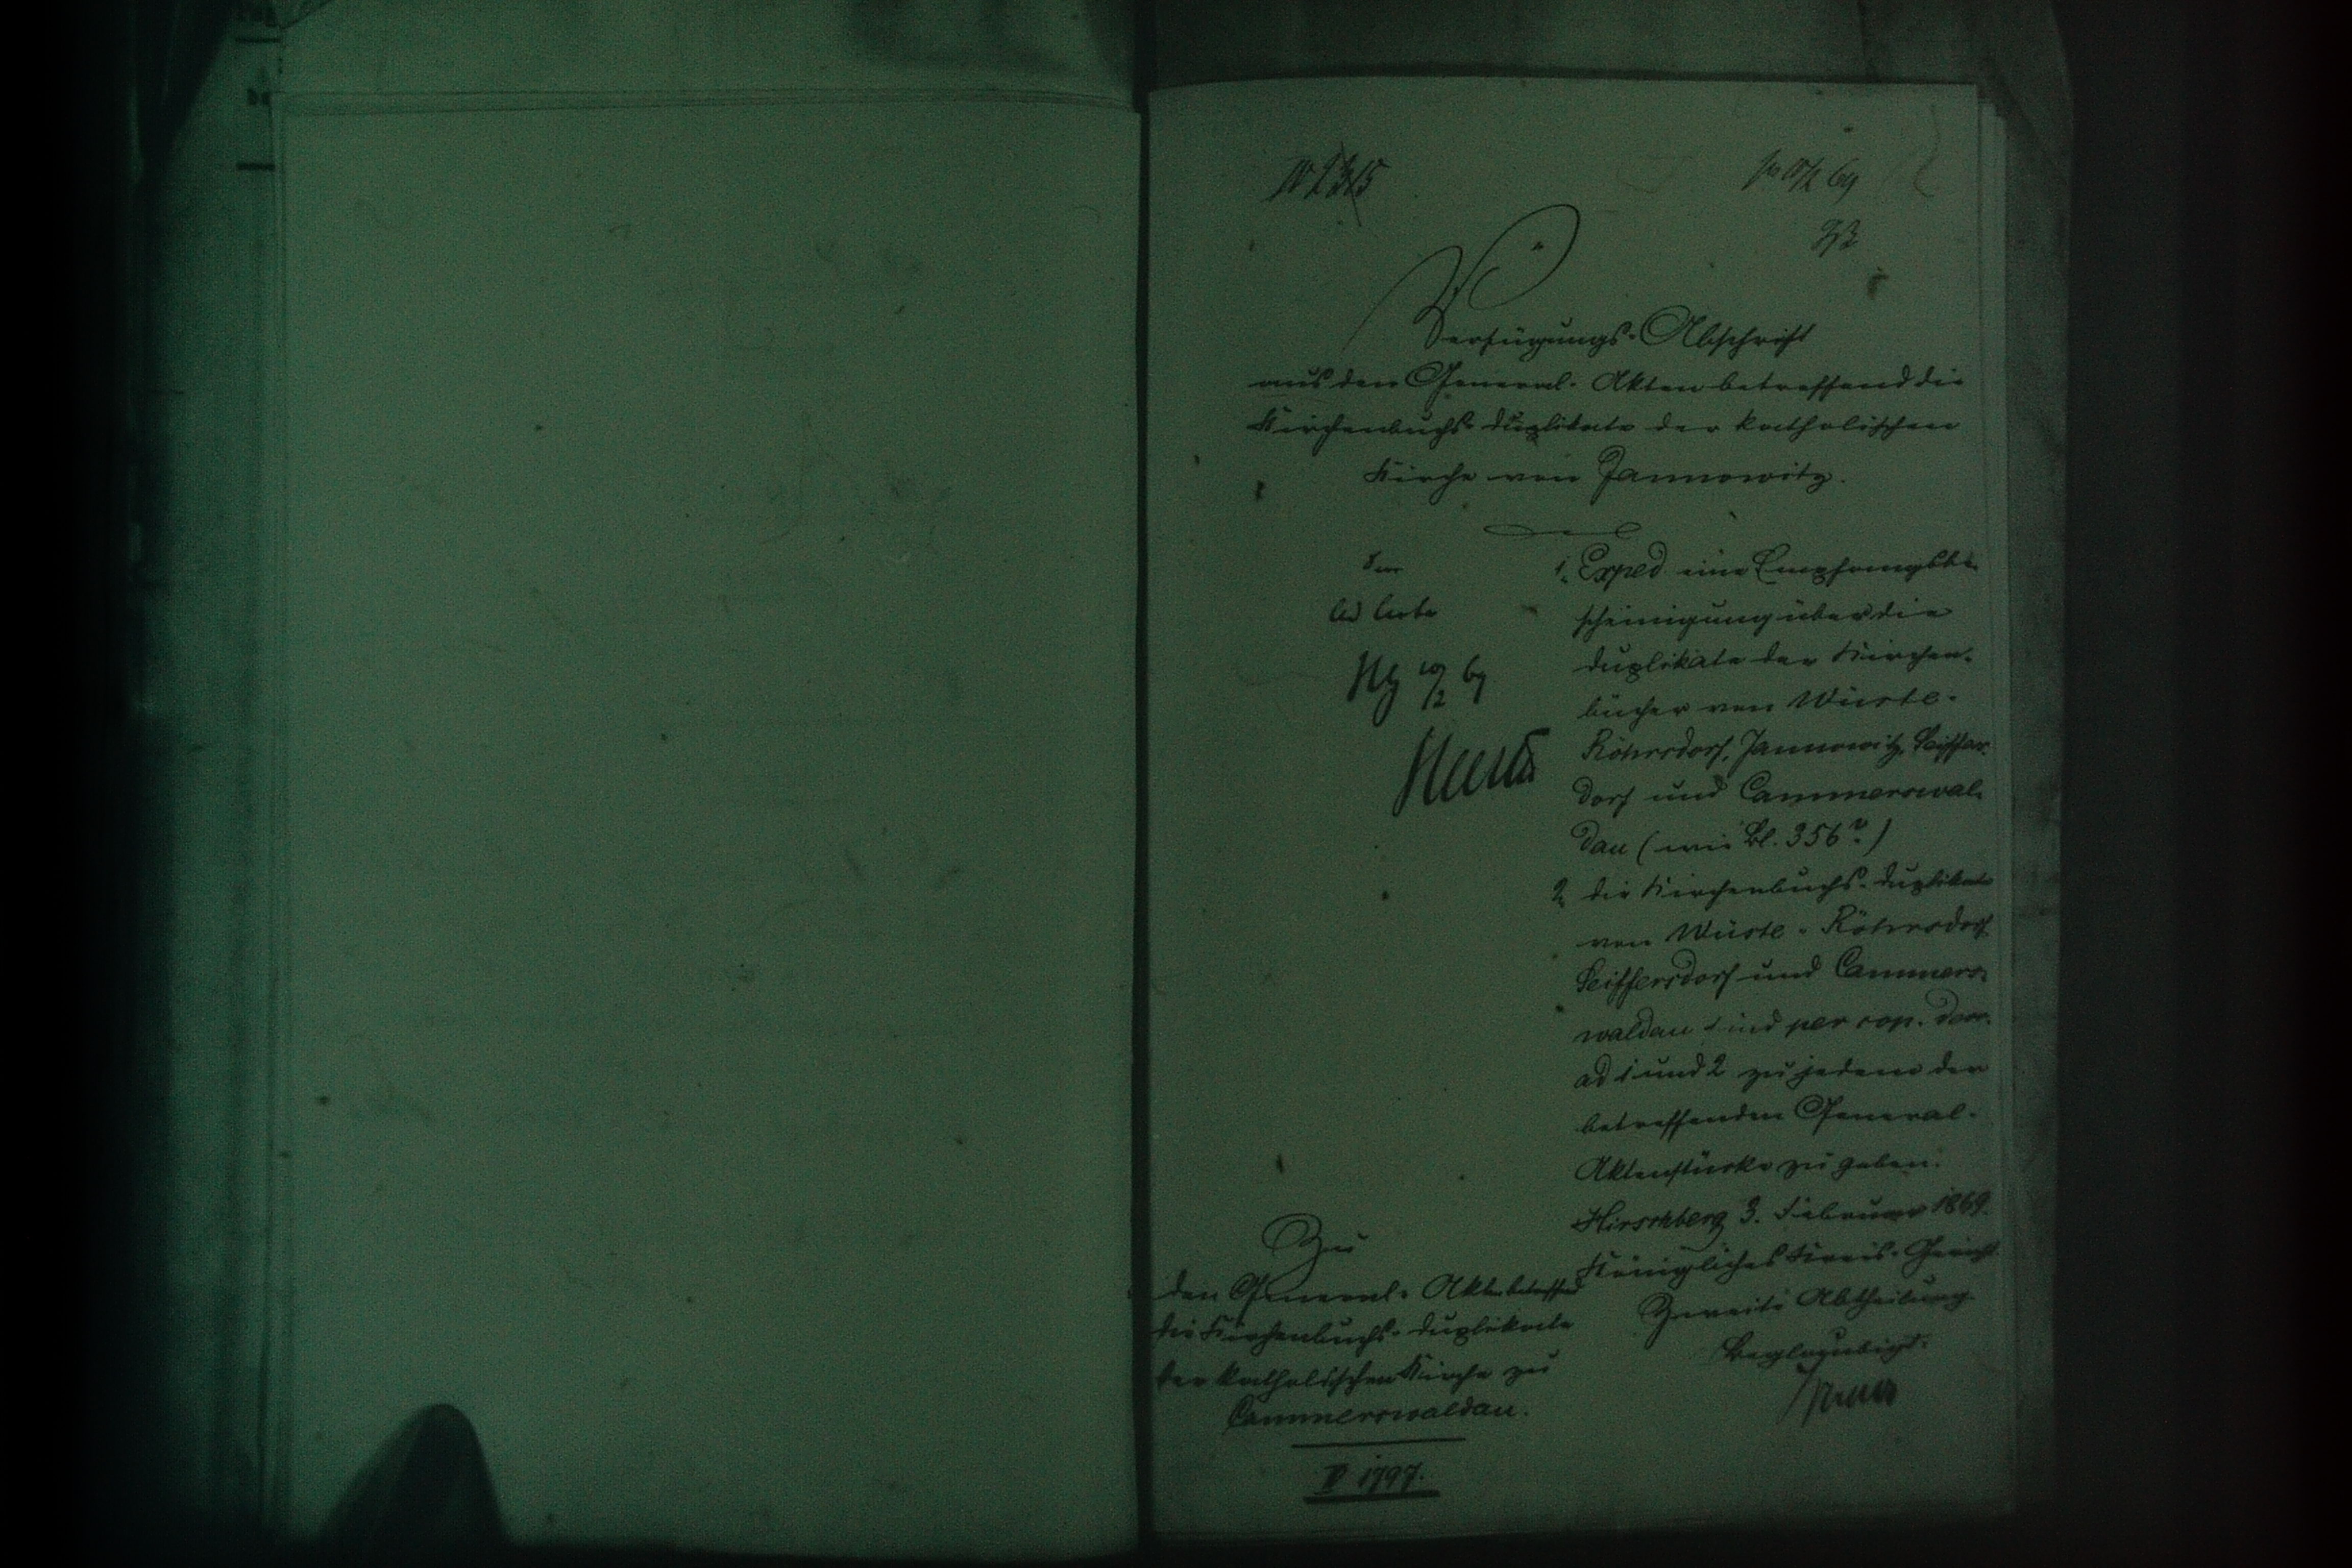 Verfügungs-Abschrift
aus den General-Akten betreffend die
Kirchenbuchs-Duplikate der katholischen
Kirche von Jannowitz.
1, Exped eine Empfangsbe-
scheinigung über die
Duplikate der Kirchen-
bücher von Wüste-
Röhrsdorf, Jannowitz, Seiffers-
dorf und Cammerswal-
dau (wie Bl. 356 v.)
2, die Kirchenbuchs-Duplikate
von Wüste-Röhrsdorf
Seiffersdorf und Cammers-
waldau sind per cop. decr.
ad 1 und 2 zu jedem der
betreffenden General-
Aktenstücke zu geben.
Hirschberg 3. Februar 1869.
Königliches Kreis-Gericht
Zweite Abtheilung
Beglaubigt.
ad acta
Zu
den General-Akten betreffend
die Kirchenbuchs-Duplikate
der katholischen Kirche zu
Cammerswaldau.
IV 1797.